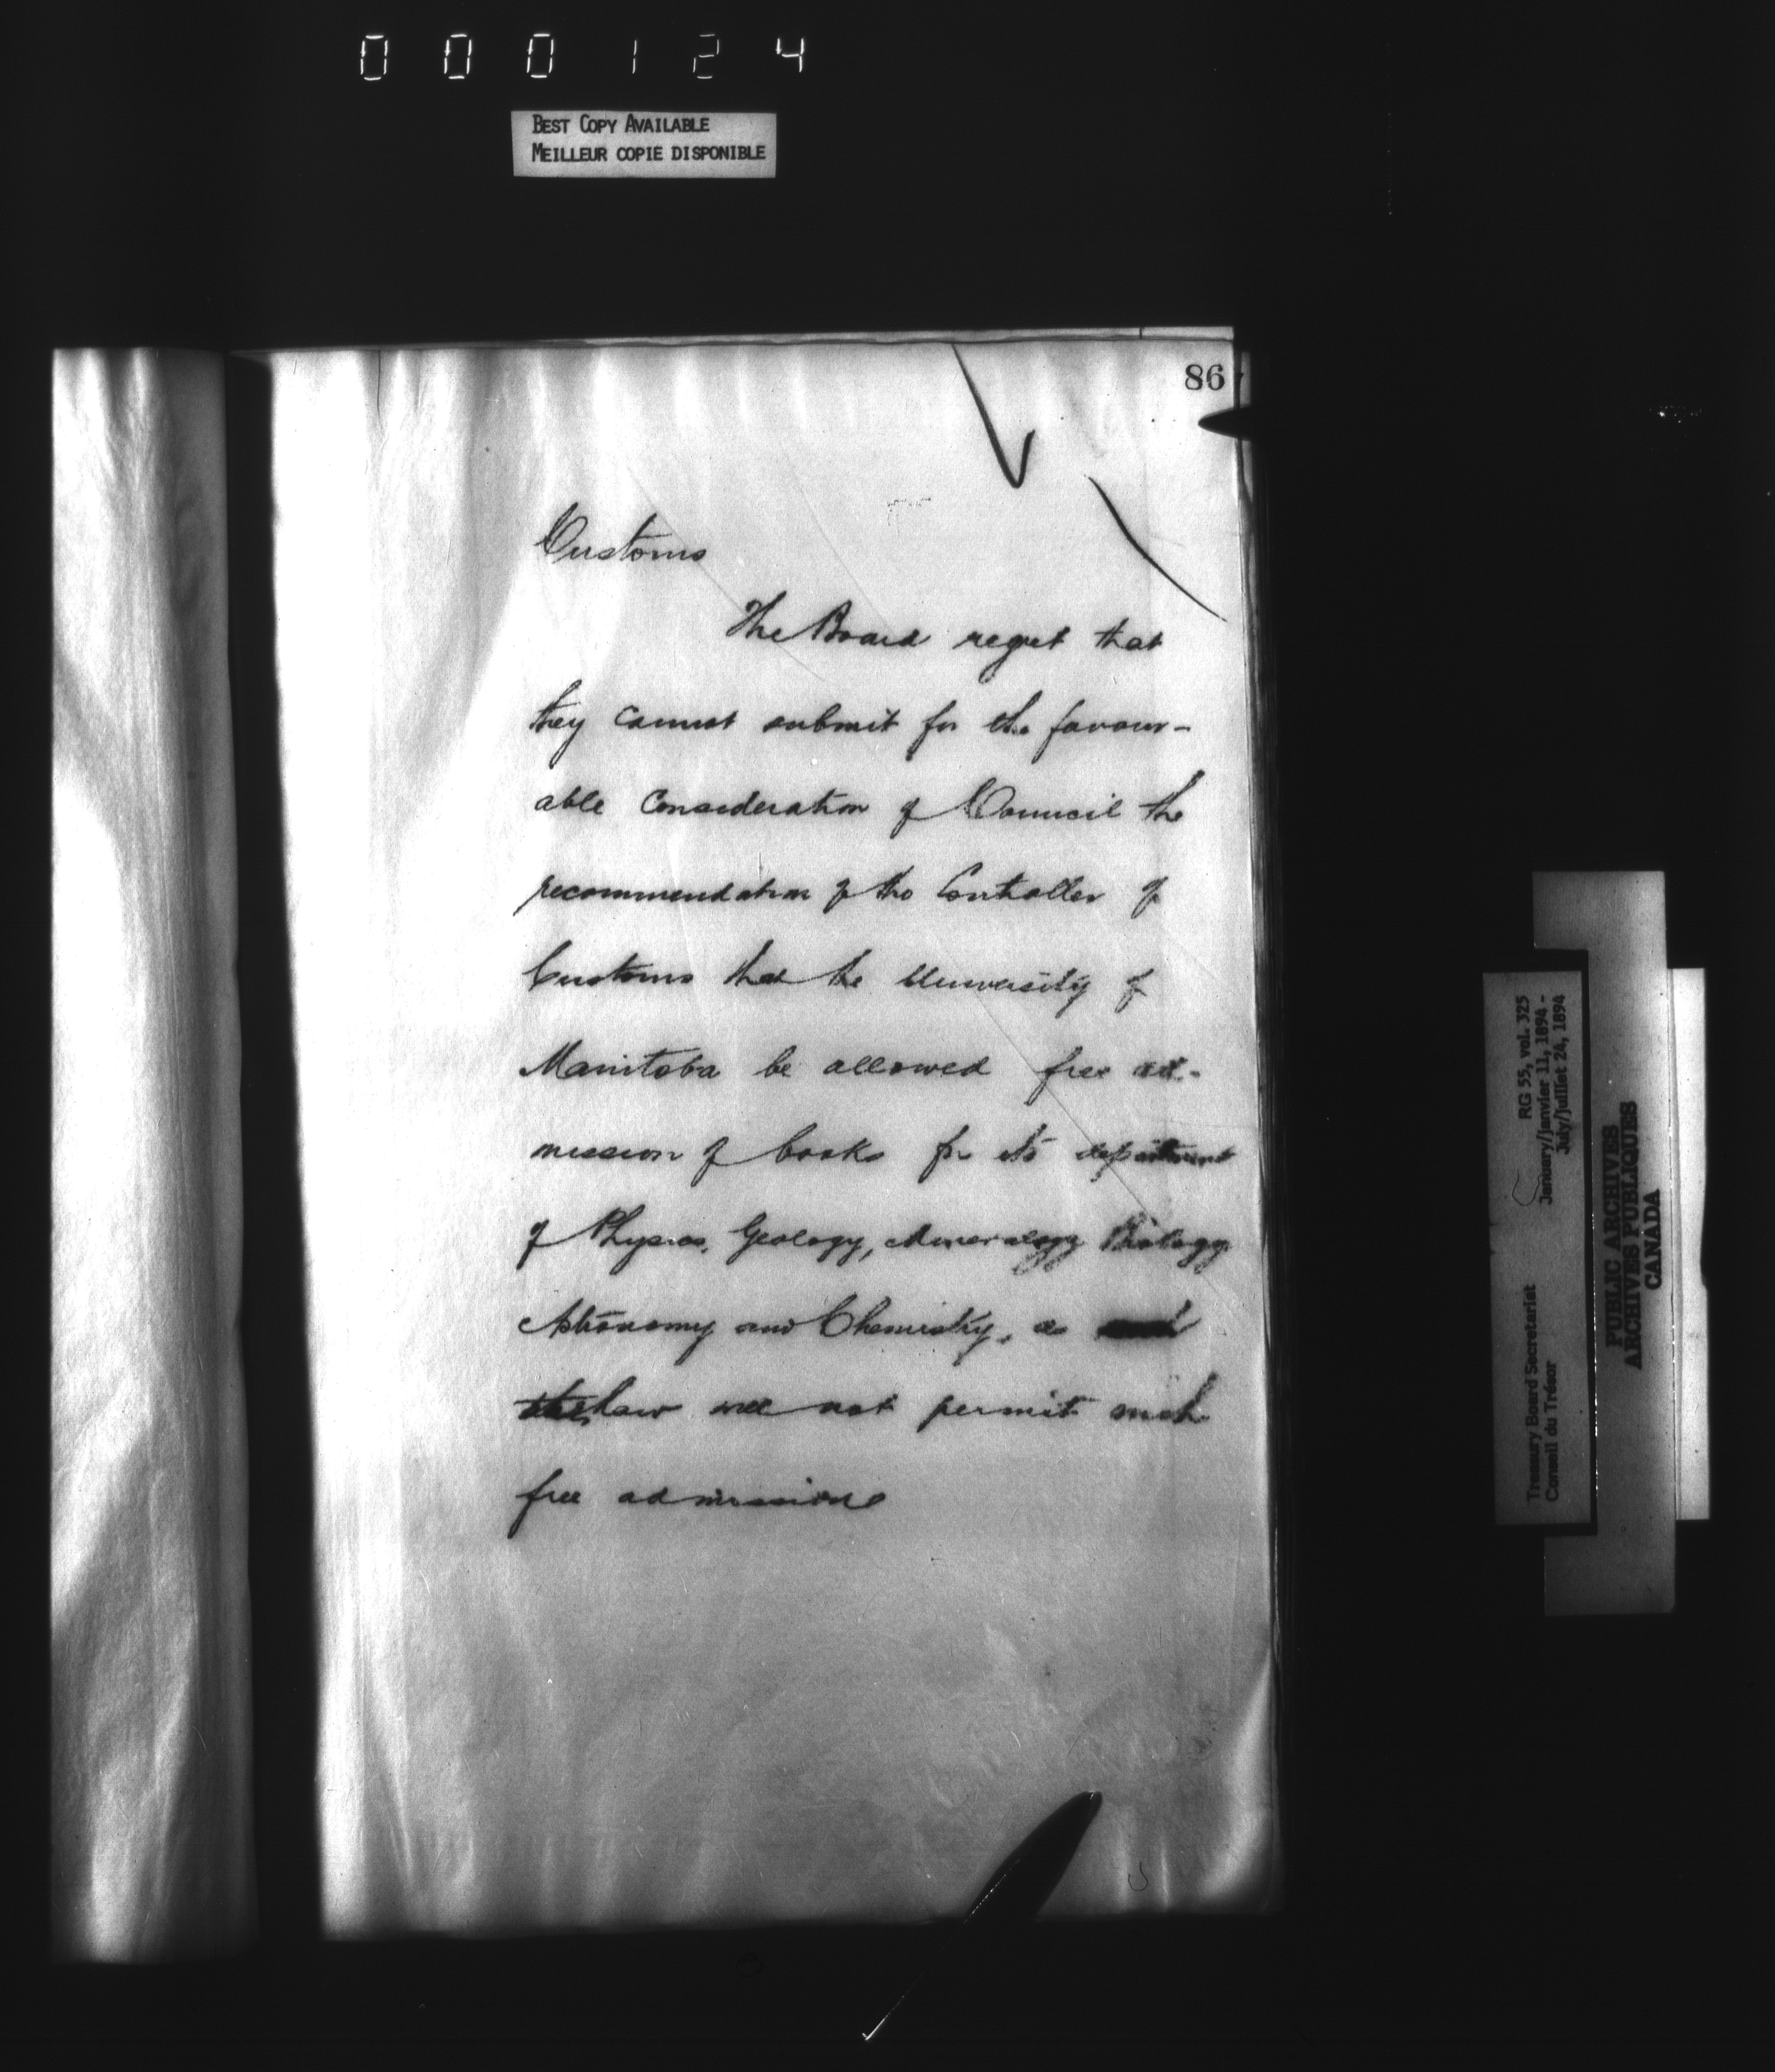 000124
BEST COPY AVAILABLE
MEILLEUR COPIE DISPONIBLE
86
Customs
The Board regret that
they cannot submit for the favour-
able Consideration of Council the
recommendation of the Controller of
Customs that the University of
Manitoba be allowed free ad-
mission of books for its department
of Physics, Geology, Mineralogy Biology
Astronomy and Chemistry, as
the law will not permit such
free admission
RG 55, vol. 325
January/janvier 11, 1894 -
July/juillet 24, 1894
Treasury Board Secretariat
Conseil du Trésor
PUBLIC ARCHIVES
ARCHIVES PUBLIQUES
CANADA